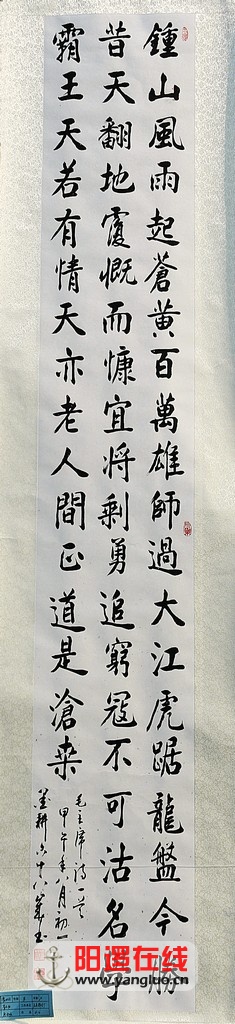 鍾山風雨起蒼黃百萬雄師過大江虎踞龍盤今勝
昔天翻地覆慨而慷宜將剩勇追窮寇不可沽名學
霸王天若有情天亦老人間正道是滄桑
毛主席诗一首
甲午年八月初一
墨耕六十八叟书
阳逻在线
www.yangluo.com